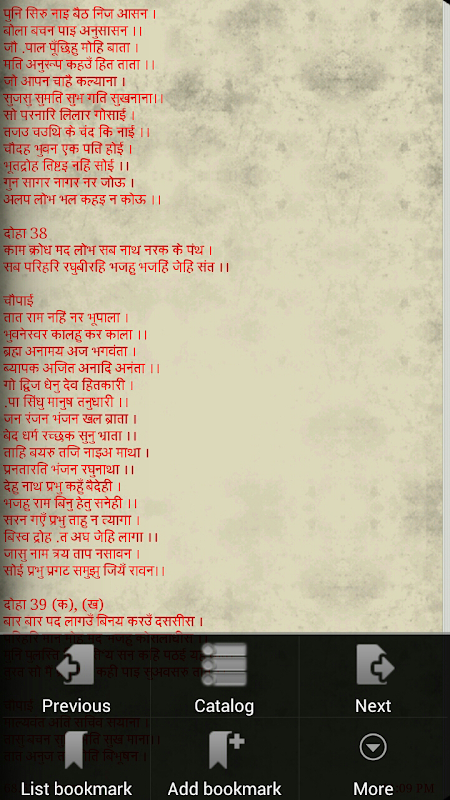 पुनि सिरु नाइ बैठ निज आसन ।
बोला बचन पाइ अनुसासन ।।
जौ .पाल पूँछिहु मोहि बाता ।
मति अनुरूप कहउँ हित ताता ।।
जो आपन चाहै कल्याना ।
सुजसु सुमति सुभ गति सुखनाना।।
सो परनारि लिलार गोसाई ।
तजउ चउथि के चंद कि नाई ।।
चौदह भुवन एक पति होई ।
भूतद्रोह तिष्टइ नहिं सोई ।।
गुन सागर नागर नर जोऊ ।
अलप लोभ भल कहइ न कोऊ ।।
दोहा 38
काम क्रोध मद लोभ सब नाथ नरक के पंथ ।
सब परिहरि रघुबीरहि भजहु भजहिं जेहि संत ।।
चौपाई
तात राम नहिं नर भूपाला ।
भुवनेस्वर कालहु कर काला ।।
ब्रह्म अनामय अज भगवंता ।
ब्यापक अजित अनादि अनंता ।।
गो द्विज धेनु देव हितकारी ।
.पा सिंधु मानुष तनुधारी ।।
जन रंजन भंजन खल ब्राता ।
बेद धर्म रच्छक सुनु भ्राता ।।
ताहि बयरु तजि नाइअ माथा ।
प्रनतारति भंजन रघुनाथा ।।
देहु नाथ प्रभु कहुँ बैदेही ।
भजहु राम बिनु हेतु सनेही ।।
सरन गएँ प्रभु ताहु न त्यागा ।
बिस्व द्रोह .त अघ जेहि लागा ।।
जासु नाम त्रय ताप नसावन ।
सोई प्रभु प्रगट समुझु जियँ रावन।।
दोहा 39 (क), (ख)
बार बार पद लागउँ बिनय करउँ दससीस ।
Previous
Catalog
Next
List bookmark
Add bookmark
More